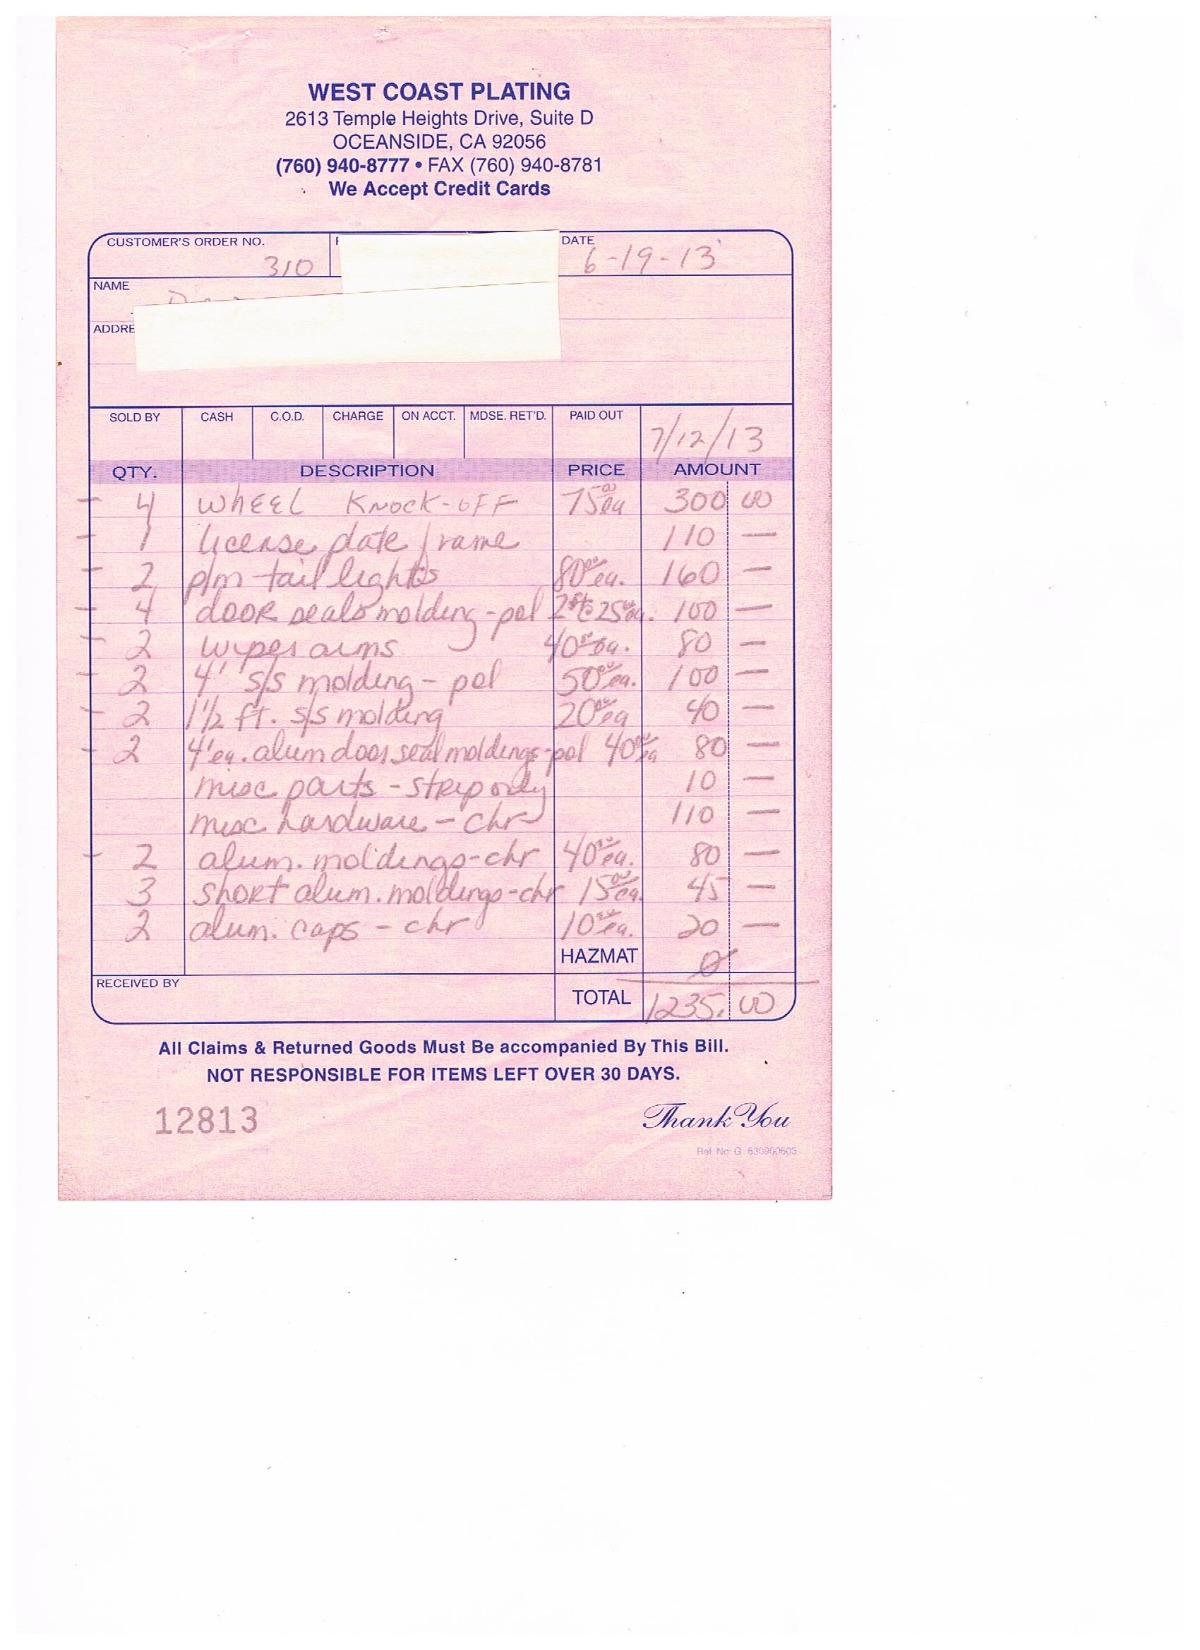 WEST COAST PLATING
2613 Temple Heights Drive, Suite D
OCEANSIDE, CA 92056
(760) 940-8777 • FAX (760) 940-8781
We Accept Credit Cards
CUSTOMER'S ORDER NO. 310 DATE 6-19-13
NAME
ADDRE
SOLD BY CASH C.O.D. CHARGE ON ACCT. MDSE. RET'D. PAID OUT 7/12/13
QTY. DESCRIPTION PRICE AMOUNT
- 4 WHEEL KNOCK-OFF 75.00 ea 300 00
- 1 license plate frame 110 —
- 2 p/m tail lights 80.00 ea. 160 —
- 4 door seals molding - pol 2 ft 25.00 ea. 100 —
- 2 wiper arms 40.00 ea. 80 —
- 2 4' s/s molding - pol 50.00 ea. 100 —
- 2 1 1/2 ft. s/s molding 20.00 ea 40 —
- 2 4' ea. alum door seal moldings - pol 40.00 ea 80 —
misc parts - strip only 10 —
misc hardware - chr 110 —
- 2 alum. moldings - chr 40.00 ea. 80 —
3 short alum. moldings - chr 15.00 ea. 45 —
2 alum. caps - chr 10.00 ea. 20 —
HAZMAT 0
RECEIVED BY TOTAL 1235.00
All Claims & Returned Goods Must Be accompanied By This Bill.
NOT RESPONSIBLE FOR ITEMS LEFT OVER 30 DAYS.
12813 Thank You